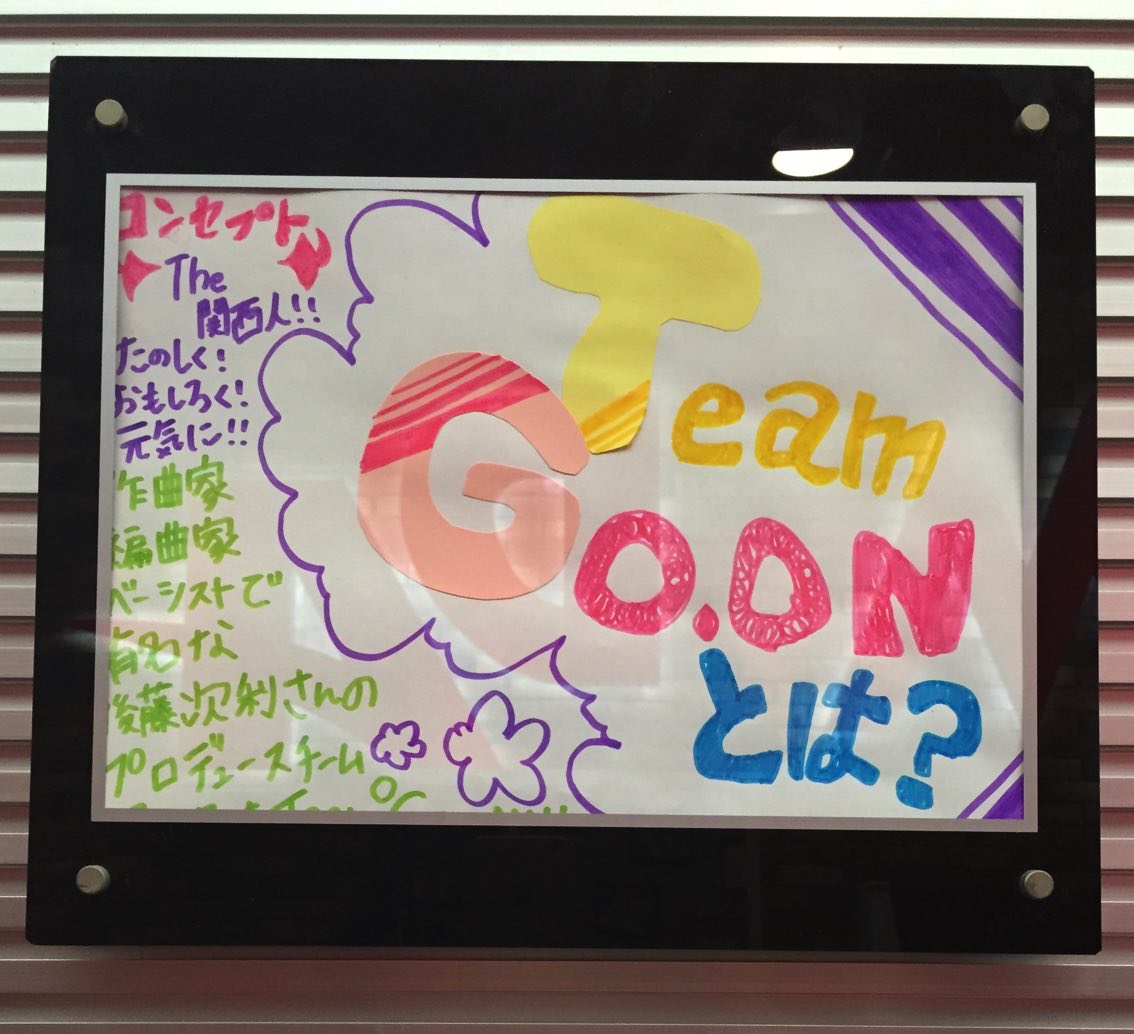 コンセプト
The
関西人!!
たのしく!
おもしろく!
元気に!!
作曲家
編曲家
ベーシストで
有名な
後藤次利さんの
プロデュースチーム
Team
GO.ON
とは?